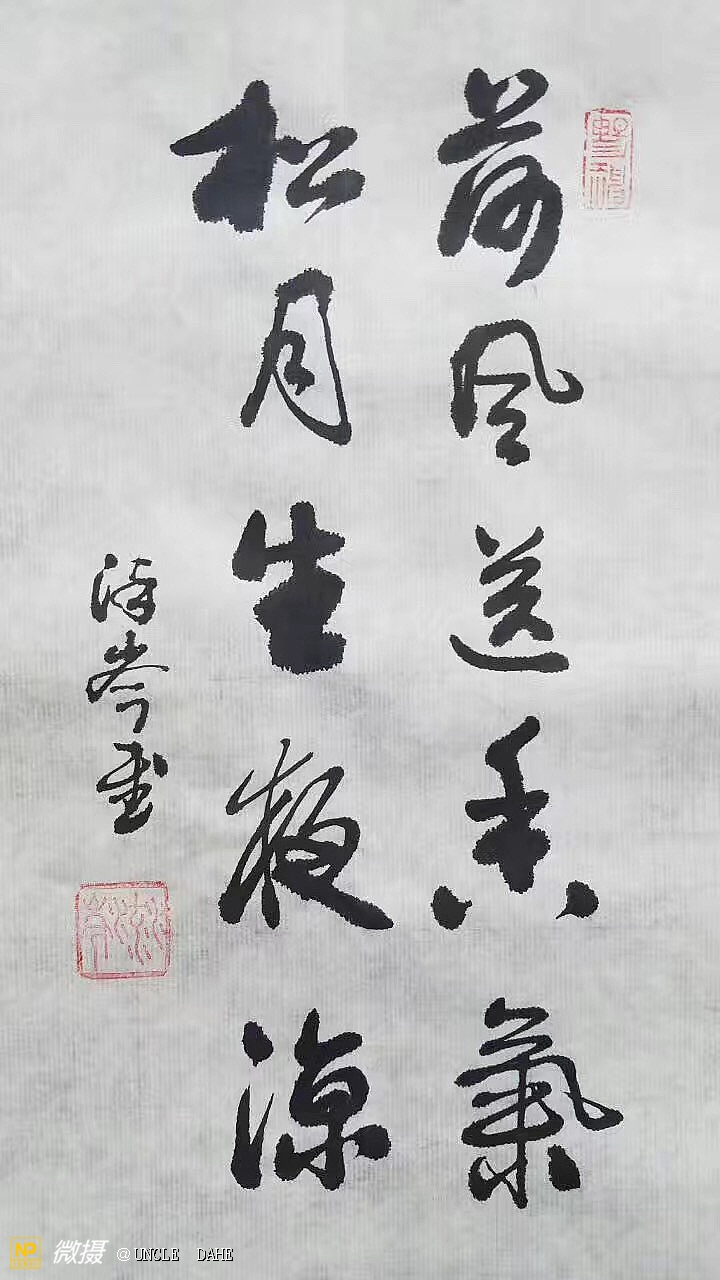 荷風送香氣
松月生夜涼
岑書
NP 微摄 @UNCLE DAHE